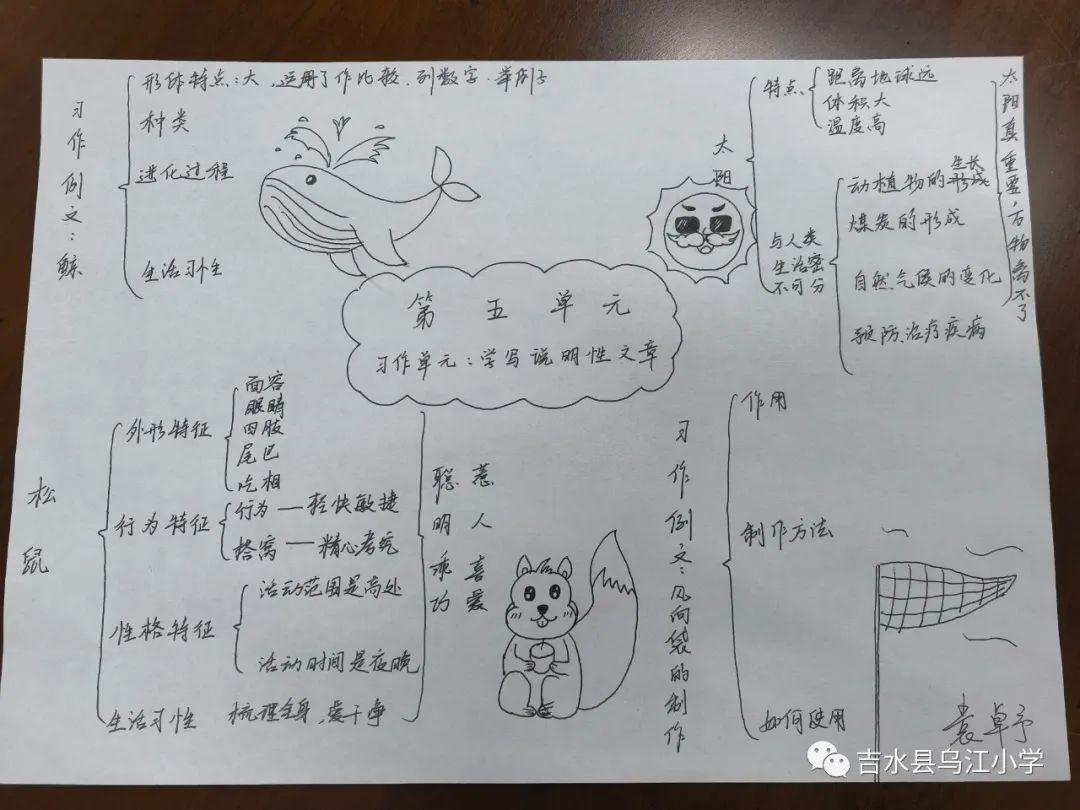 第五单元
习作单元：学写说明性文章
习作例文：鲸
形体特点：大，运用了作比较、列数字、举例子
种类
进化过程
生活习性
太阳
特点
距离地球远
体积大
温度高
与人类
生活密
不可分
动植物的生长
煤炭的形成
自然气候的变化
预防治疗疾病
太阳真重要，万物离不了
松鼠
外形特征
面容
眼睛
四肢
尾巴
吃相
行为特征
行为——轻快敏捷
搭窝——精心考究
性格特征
活动范围是高处
活动时间是夜晚
生活习性 梳理全身，爱干净
聪明乖巧
惹人喜爱
习作例文：风向袋的制作
作用
制作方法
如何使用
袁卓予
吉水县乌江小学